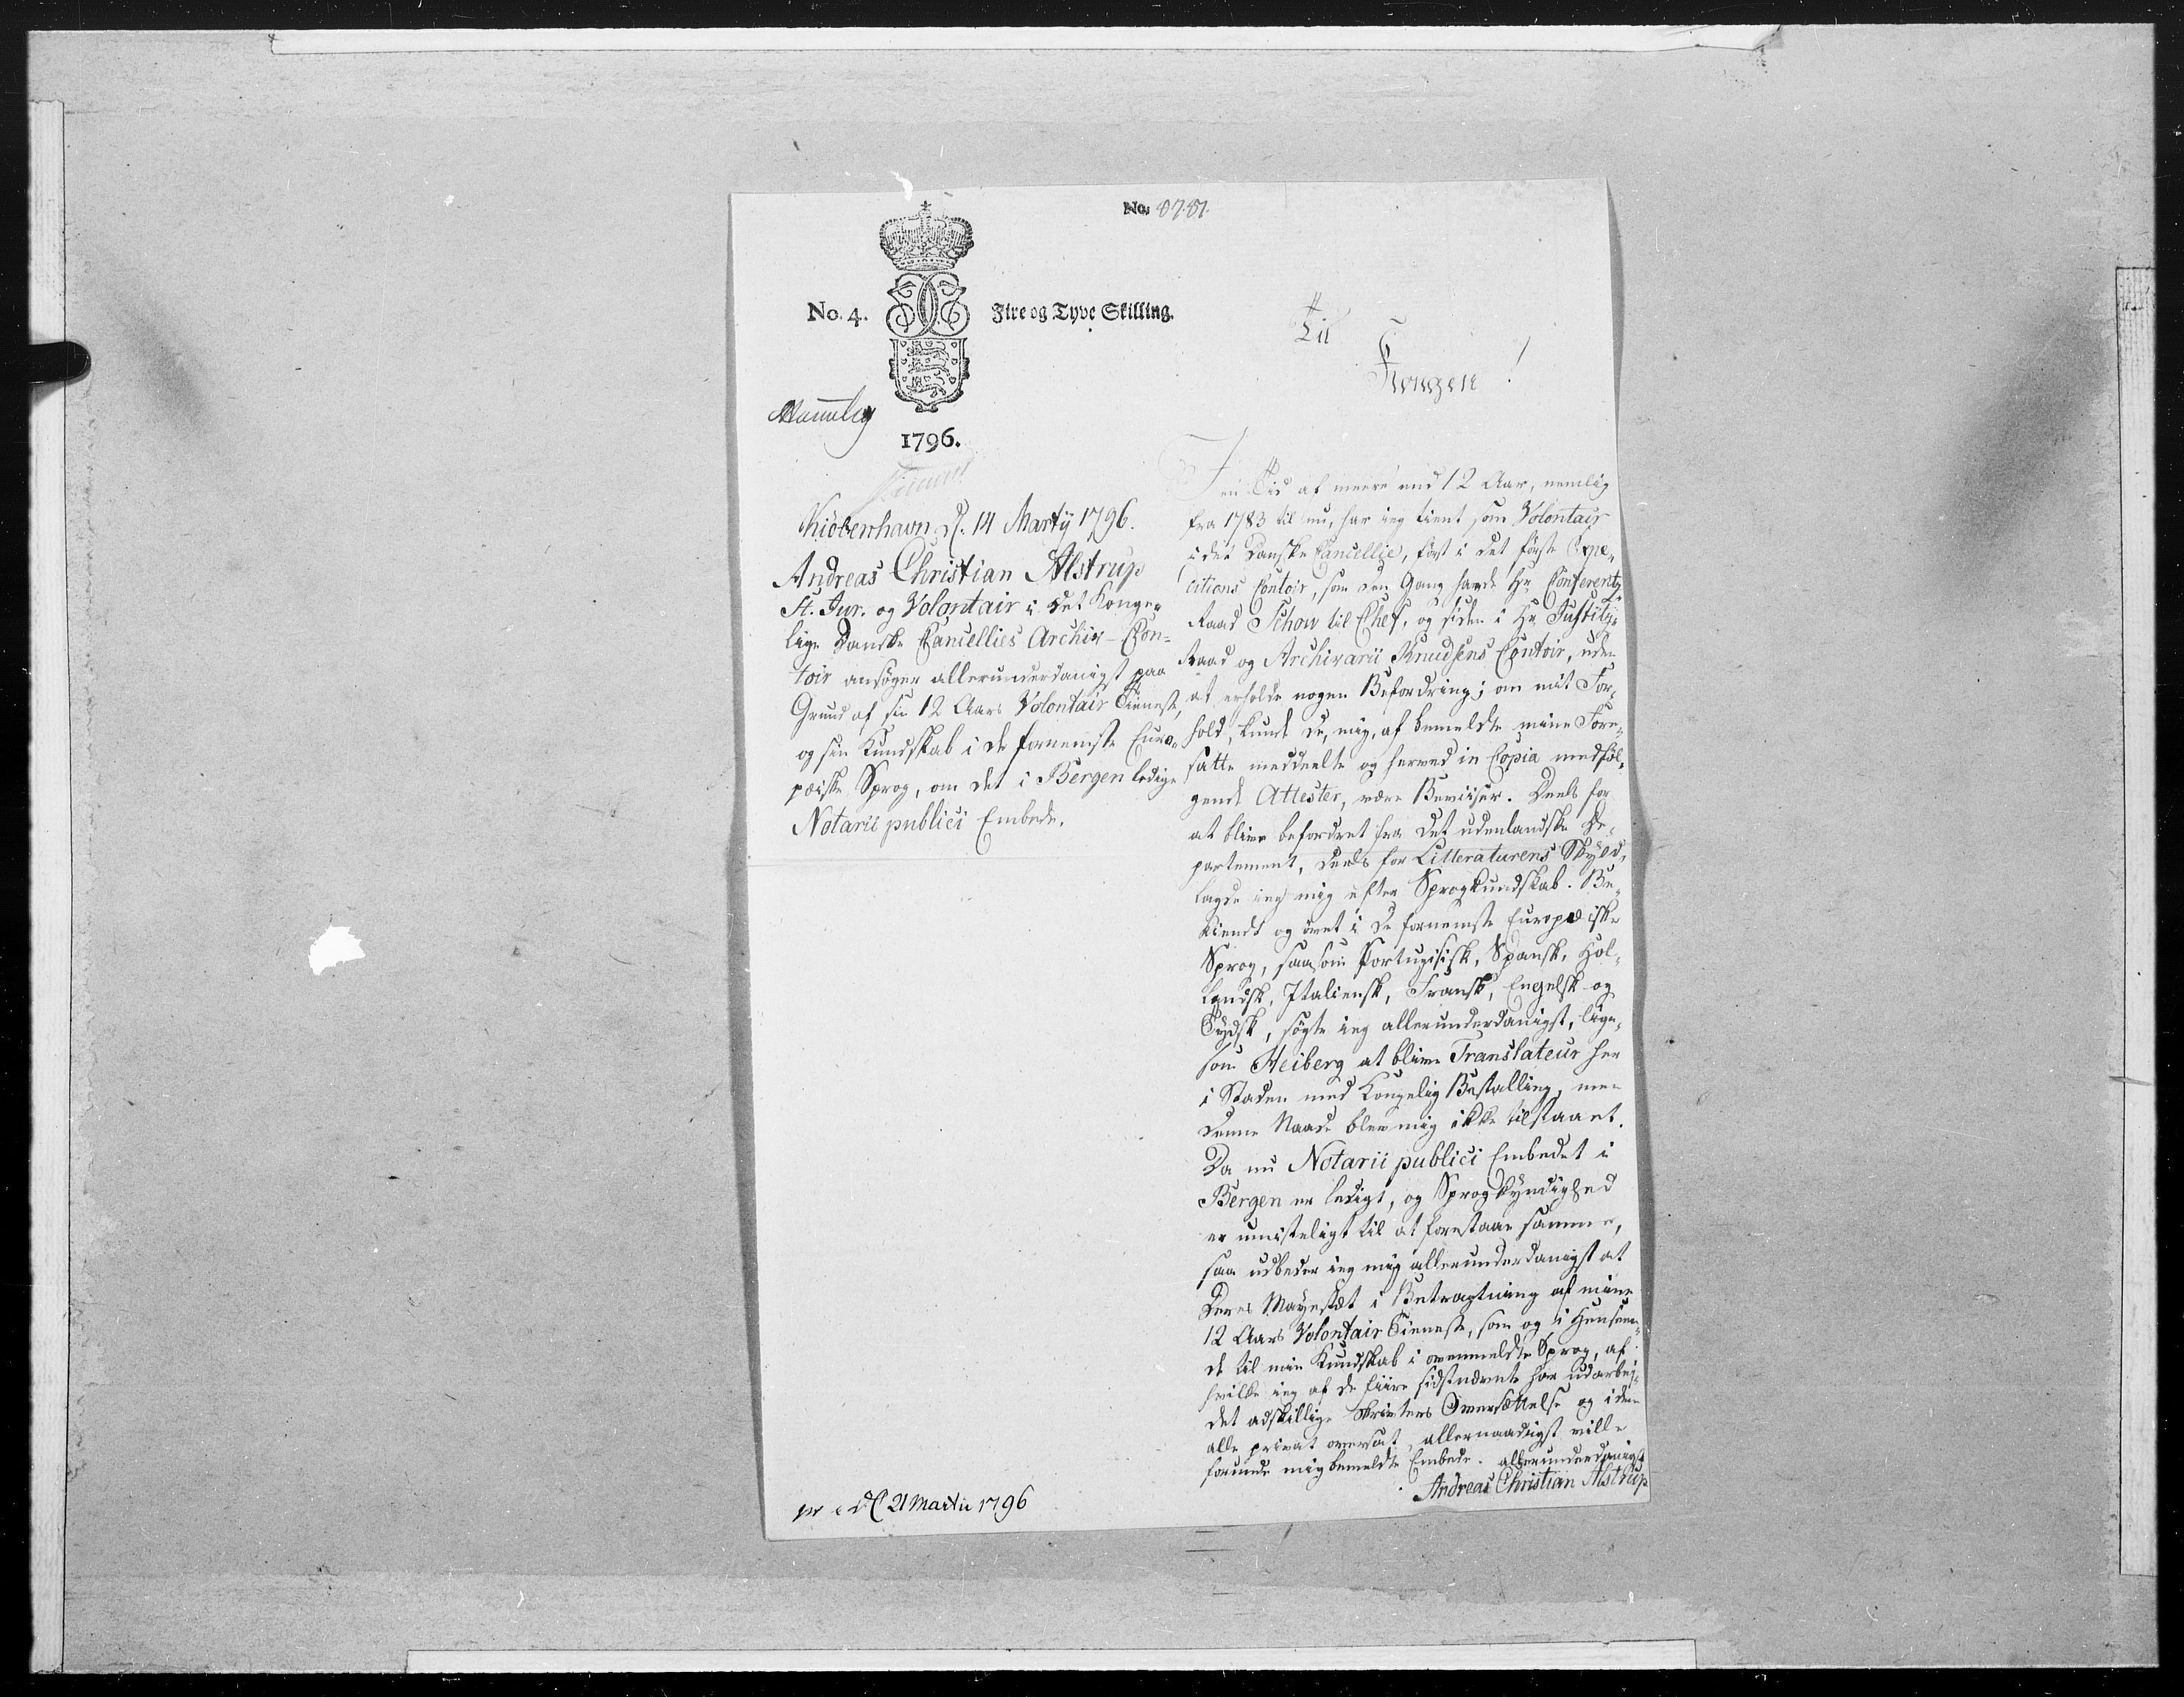 No. 8781.
No. 4. Fire og Tyve Skilling.
1796.
Kiöbenhavn d. 14 Martÿ 1796.
Andreas Christian Alstrup
St. Jur. og Volontair i det Konge-
lige Danske Cancellies Archiv-Con-
toir ansøger allerunderdanigst paa
Grund af sin 12 Aars Volontair Tieneste,
og sin Kundskab i de fornemste Euro-
pæiske Sprog, om det i Bergen ledige
Notarii publici Embede.
Til
Kongen!
I en Tid af meere end 12 Aar, nemlig
fra 1783 til nu, har jeg tient som Volontair
i det Danske Cancellie, først i det første Expe-
ditions Contoir, som den Gang havde Hr. Conferentz-
Raad Schow til Chef, og siden i Hr. Justitz-
Raad og Archivarii Knudsens Contoir, uden
at erholde nogen Befordring; om mit For-
hold, kunde de, mig, af bemeldte mine Fore-
satte meddeelte og herved in Copia medføl-
gende Attester, være Beviiser. Deels for
at blive befordret fra det udenlandske De-
partement, deels for Litteraturens Skyld,
lagde jeg mig efter Sprogkundskab. Be-
kiendt og øvet i de fornemste Europæiske
Sprog, saasom Portugisisk, Spansk, Hol-
landsk, Italiensk, Fransk, Engelsk og
Tydsk, søgte jeg allerunderdanigst, lige-
som Heiberg at blive Translateur her
i Staden med Kongelig Bestalling, men
denne Naade blev mig ikke tilstaaet.
Da nu Notarii publici Embedet i
Bergen er ledigt, og Sprogkyndighed
er umisteligt til at forestaae samme,
saa udbeder jeg mig allerunderdanigst at
Deres Mayestæt i Betragtning af mine
12 Aars Volontair Tieneste, som og i Henseen-
de til min Kundskab i ovenmeldte Sprog, af
hvilke jeg af de fiire sidstnævnte har udarbej-
det adskillige Skrivters Oversættelse og i dem
alle privat oversat, allernaadigst ville
forunde mig bemeldte Embede. allerunderdanigst
Andreas Christian Alstrup
d 21 Martii 1796